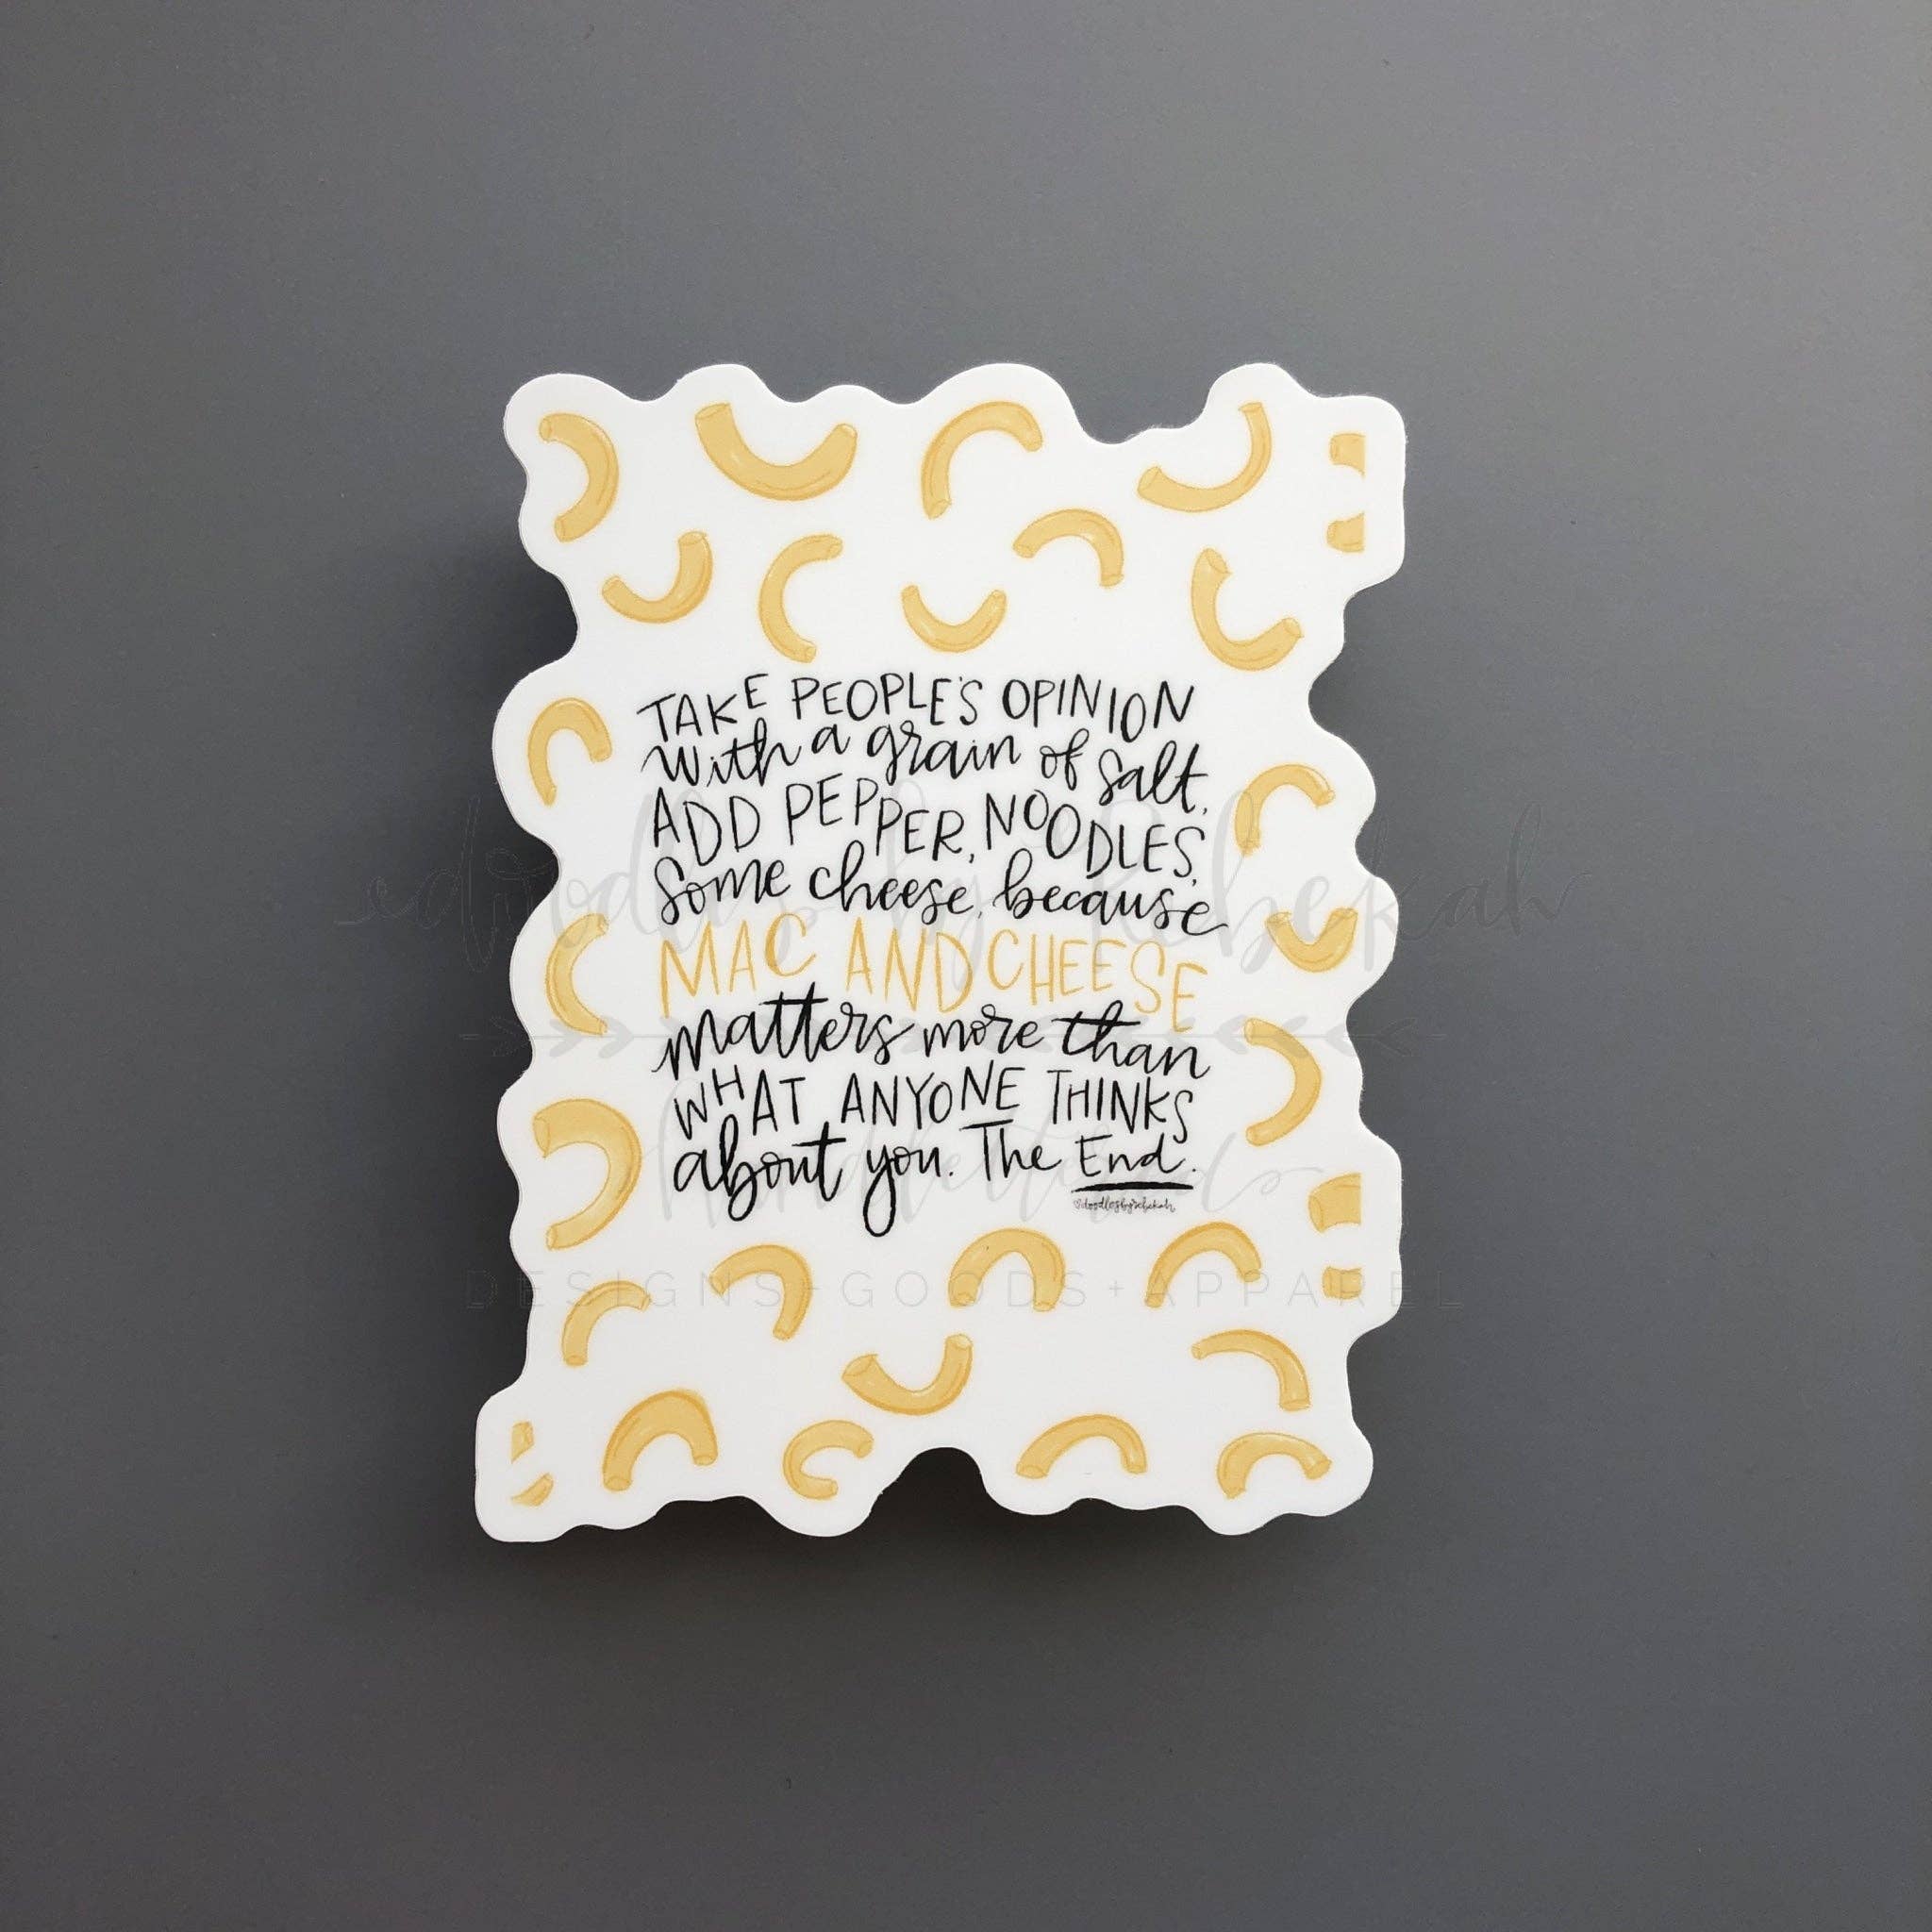 TAKE PEOPLE'S OPINION
with a grain of salt,
ADD PEPPER, NOODLES,
some cheese, because
MAC AND CHEESE
matters more than
WHAT ANYONE THINKS
about you. The End.
doodlesbyrebekah
doodles by Rebekah
handlettered
DESIGNS + GOODS + APPAREL